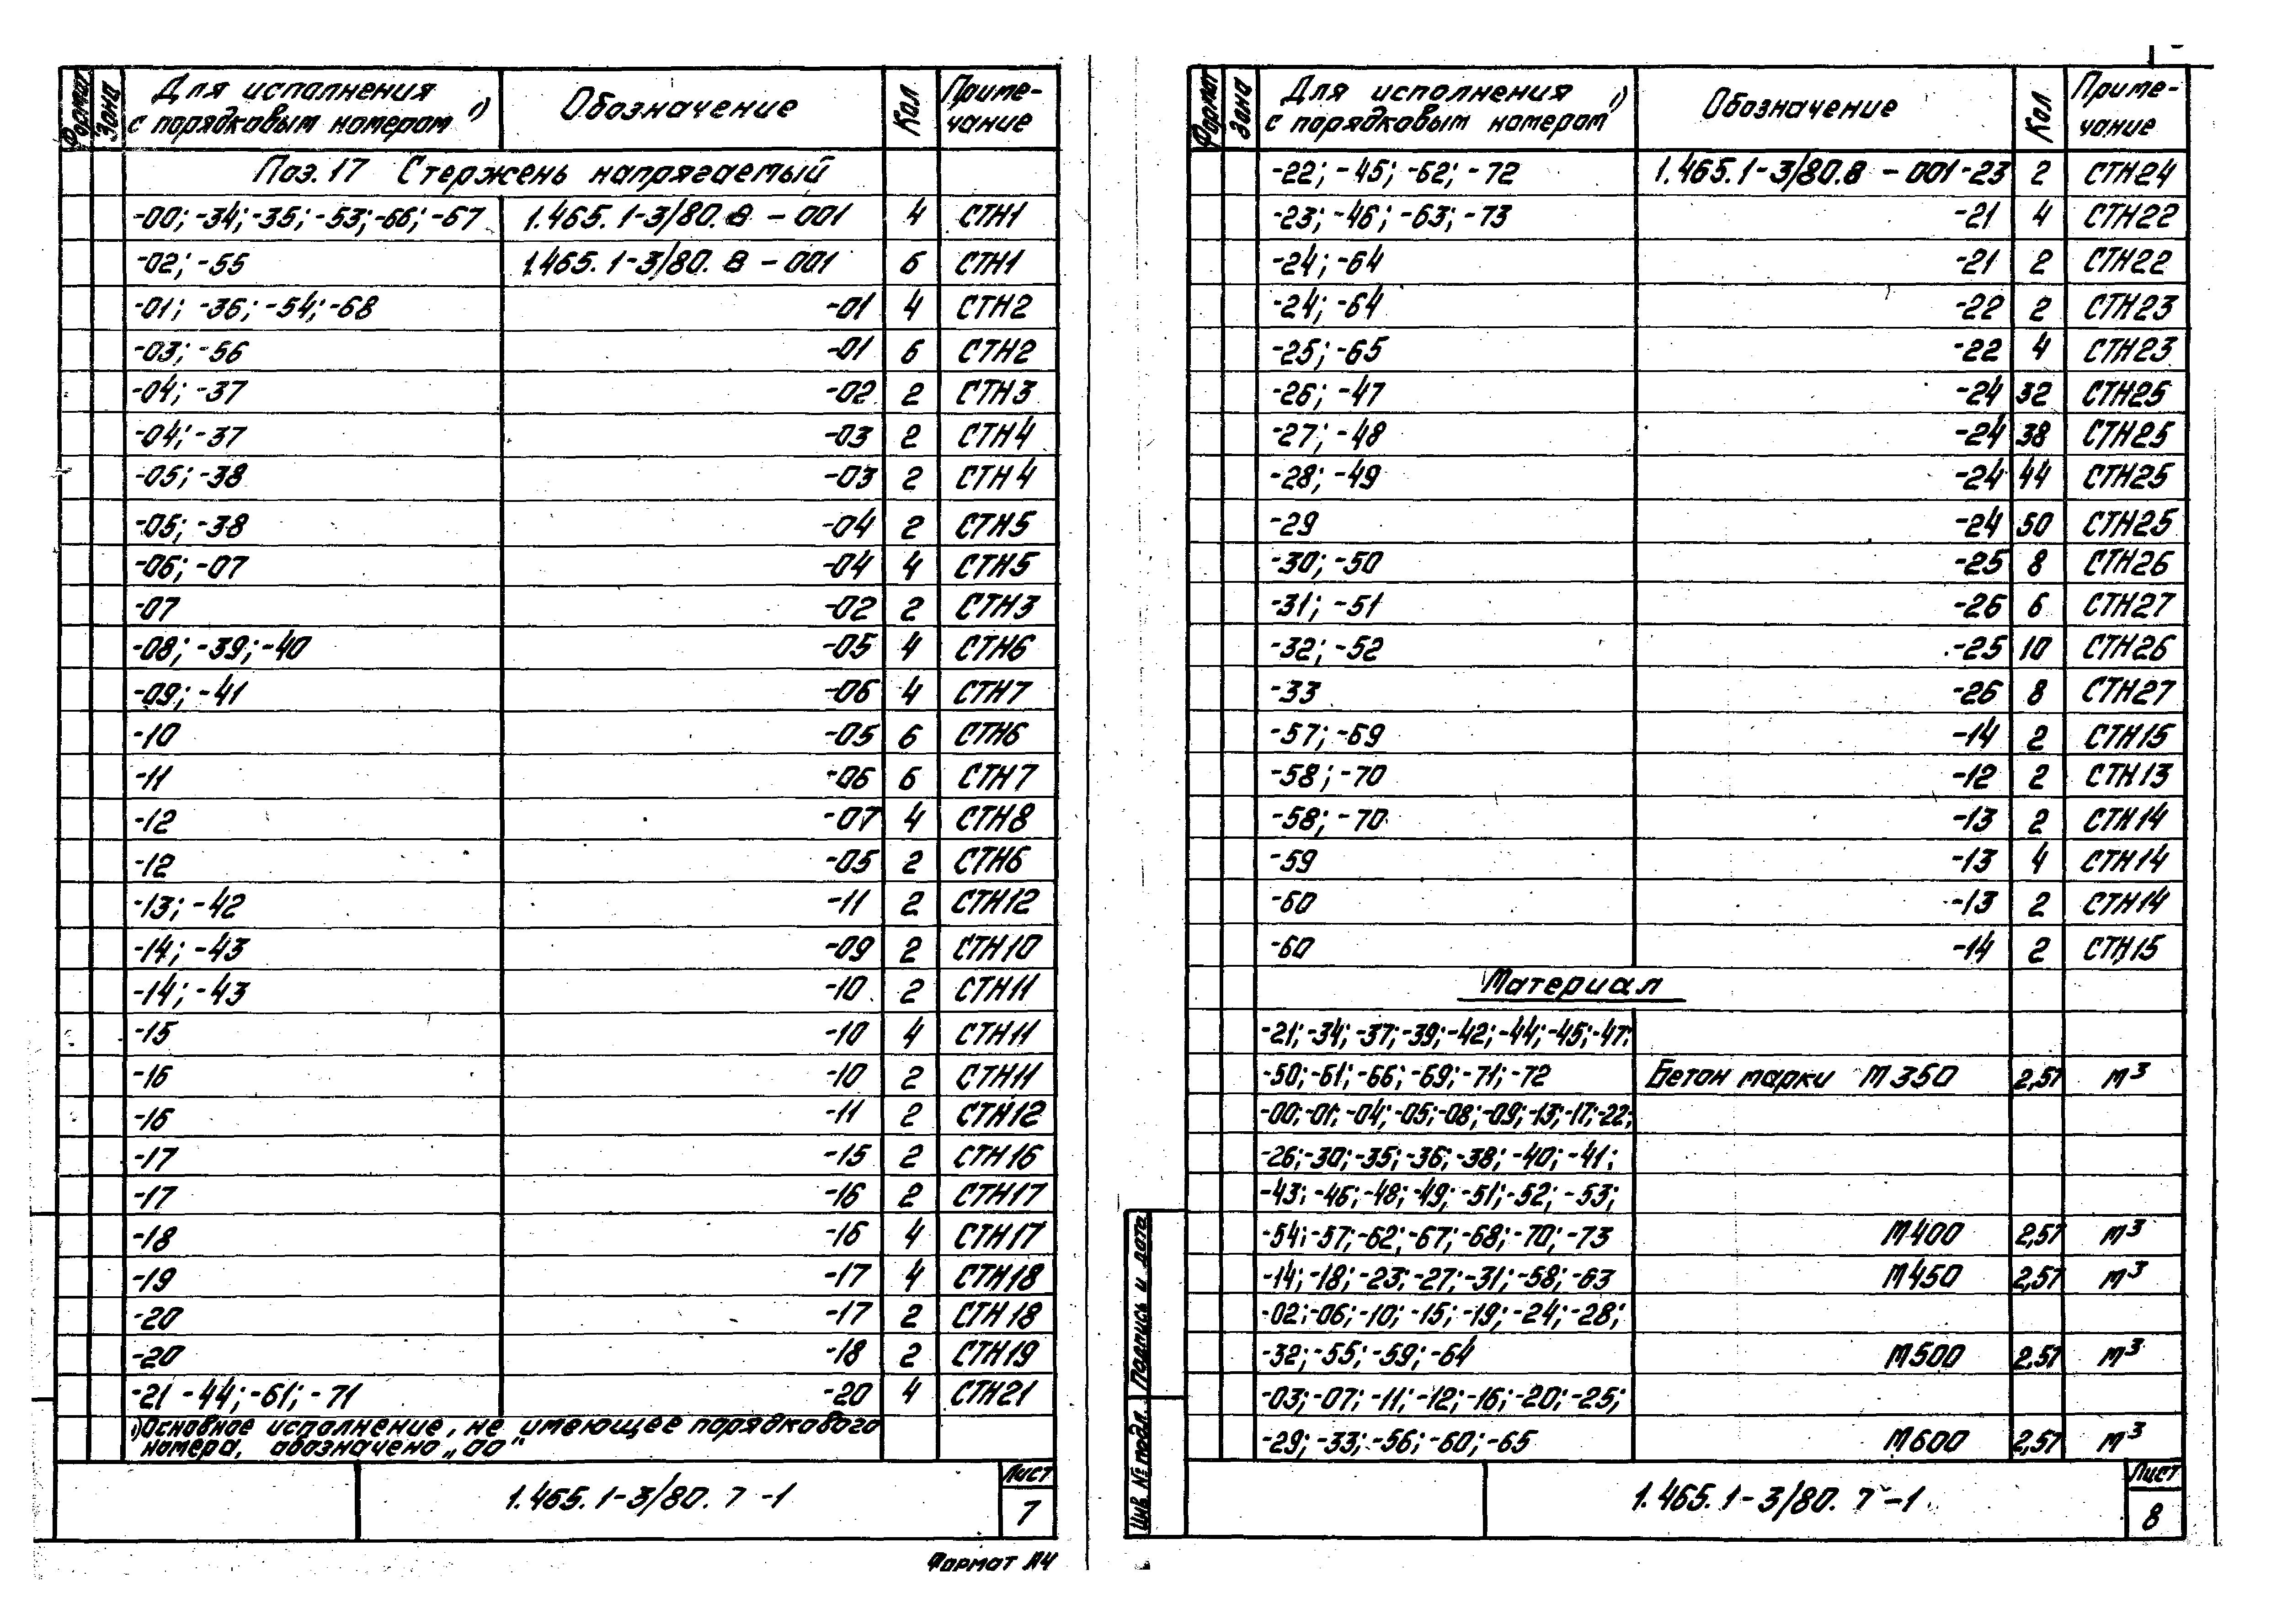 Формат Зона Для исполнения с порядковым номером 1) Обозначение Кол Приме-чание
Поз. 17 Стержень напрягаемый
-00; -34; -35; -53; -66; -67 1.465.1-3/80.8 - 001 4 СТН1
-02; -55 1.465.1-3/80.8 - 001 6 СТН1
-01; -36; -54; -68 -01 4 СТН2
-03; -56 -01 6 СТН2
-04; -37 -02 2 СТН3
-04; -37 -03 2 СТН4
-05; -38 -03 2 СТН4
-05; -38 -04 2 СТН5
-06; -07 -04 4 СТН5
-07 -02 2 СТН3
-08; -39; -40 -05 4 СТН6
-09; -41 -06 4 СТН7
-10 -05 6 СТН6
-11 -06 6 СТН7
-12 -07 4 СТН8
-12 -05 2 СТН6
-13; -42 -11 2 СТН12
-14; -43 -09 2 СТН10
-14; -43 -10 2 СТН11
-15 -10 4 СТН11
-16 -10 2 СТН11
-16 -11 2 СТН12
-17 -15 2 СТН16
-17 -16 2 СТН17
-18 -16 4 СТН17
-19 -17 4 СТН18
-20 -17 2 СТН18
-20 -18 2 СТН19
-21 -44; -61; -71 -20 4 СТН21
1) Основное исполнение, не имеющее порядкового
номера, обозначено „00"
1.465.1-3/80.7-1 Лист 7
Формат А4
Формат Зона Для исполнения с порядковым номером 1) Обозначение Кол Приме-чание
-22; -45; -62; -72 1.465.1-3/80.8 - 001-23 2 СТН24
-23; -46; -63; -73 -21 4 СТН22
-24; -64 -21 2 СТН22
-24; -64 -22 2 СТН23
-25; -65 -22 4 СТН23
-26; -47 -24 32 СТН25
-27; -48 -24 38 СТН25
-28; -49 -24 44 СТН25
-29 -24 50 СТН25
-30; -50 -25 8 СТН26
-31; -51 -26 6 СТН27
-32; -52 -25 10 СТН26
-33 -26 8 СТН27
-57; -69 -14 2 СТН15
-58; -70 -12 2 СТН13
-58; -70 -13 2 СТН14
-59 -13 4 СТН14
-60 -13 2 СТН14
-60 -14 2 СТН15
Материал
-21; -34; -37; -39; -42; -44; -45; -47;
-50; -61; -66; -69; -71; -72 Бетон марки М350 2,57 м³
-00; -01; -04; -05; -08; -09; -13; -17; -22;
-26; -30; -35; -36; -38; -40; -41;
-43; -46; -48; -49; -51; -52; -53;
-54; -57; -62; -67; -68; -70; -73 М400 2,57 м³
-14; -18; -23; -27; -31; -58; -63 М450 2,57 м³
-02; -06; -10; -15; -19; -24; -28;
-32; -55; -59; -64 М500 2,57 м³
-03; -07; -11; -12; -16; -20; -25;
-29; -33; -56; -60; -65 М600 2,57 м³
Инв. № подл. Подпись и дата
1.465.1-3/80.7-1 Лист 8